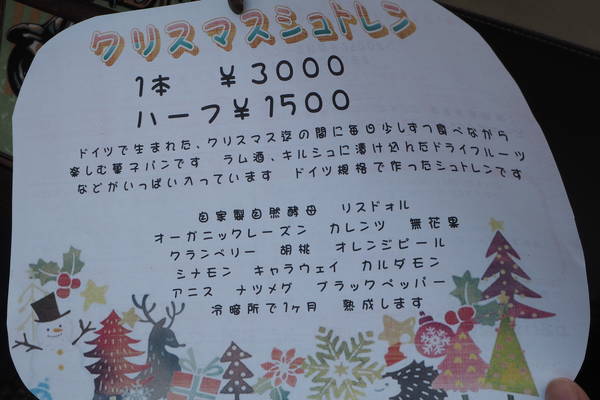 クリスマスシュトレン
1本 ¥3000
ハーフ¥1500
ドイツで生まれた、クリスマス迄の間に毎日少しずつ食べながら
楽しむ菓子パンです ラム酒、キルシュに漬け込んだドライフルーツ
などがいっぱい入っています ドイツ規格で作ったシュトレンです
自家製自然酵母 リスドォル
オーガニックレーズン カレンツ 無花果
クランベリー 胡桃 オレンジピール
シナモン キャラウェイ カルダモン
アニス ナツメグ ブラックペッパー
冷暗所で1ヶ月 熟成します